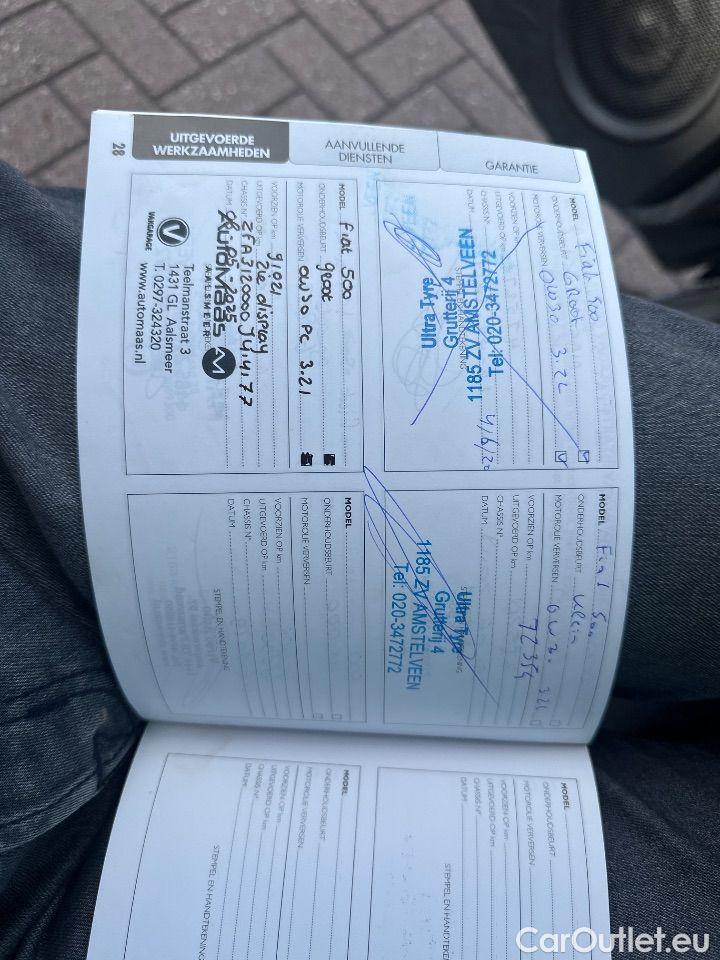 28
UITGEVOERDE
WERKZAAMHEDEN
AANVULLENDE
DIENSTEN
GARANTIE
MODEL Fiat 500
ONDERHOUDSBEURT Groot
MOTOROLIE VERVERSEN 0W30 3.2L
VOORZIEN OP km
UITGEVOERD OP km
CHASSIS N°
DATUM 4/6/20
Ultra Tyre
Grutterij 4
1185 ZV AMSTELVEEN
Tel: 020-3472772
MODEL Fiat 500
ONDERHOUDSBEURT Klein
MOTOROLIE VERVERSEN 0W30 3.2L
VOORZIEN OP km
UITGEVOERD OP km 72354
CHASSIS N°
DATUM
Ultra Tyre
Grutterij 4
1185 ZV AMSTELVEEN
Tel: 020-3472772
MODEL Fiat 500
ONDERHOUDSBEURT groot
MOTOROLIE VERVERSEN 0W30 PC 3.2l
VOORZIEN OP km 91021
UITGEVOERD OP km zie display
CHASSIS N° ZFA3120000J414177
DATUM
AutoMaas
AALSMEER
VAKGARAGE
Teelmanstraat 3
1431 GL Aalsmeer
T. 0297-324320
www.automaas.nl
MODEL
ONDERHOUDSBEURT
MOTOROLIE VERVERSEN
VOORZIEN OP km
UITGEVOERD OP km
CHASSIS N°
DATUM
STEMPEL EN HANDTEKENING
MODEL
ONDERHOUDSBEURT
MOTOROLIE VERVERSEN
VOORZIEN OP km
UITGEVOERD OP km
CHASSIS N°
DATUM
STEMPEL EN HANDTEKENING
MODEL
ONDERHOUDSBEURT
MOTOROLIE VERVERSEN
VOORZIEN OP km
UITGEVOERD OP km
CHASSIS N°
DATUM
STEMPEL EN HANDTEKENING
CarOutlet.eu